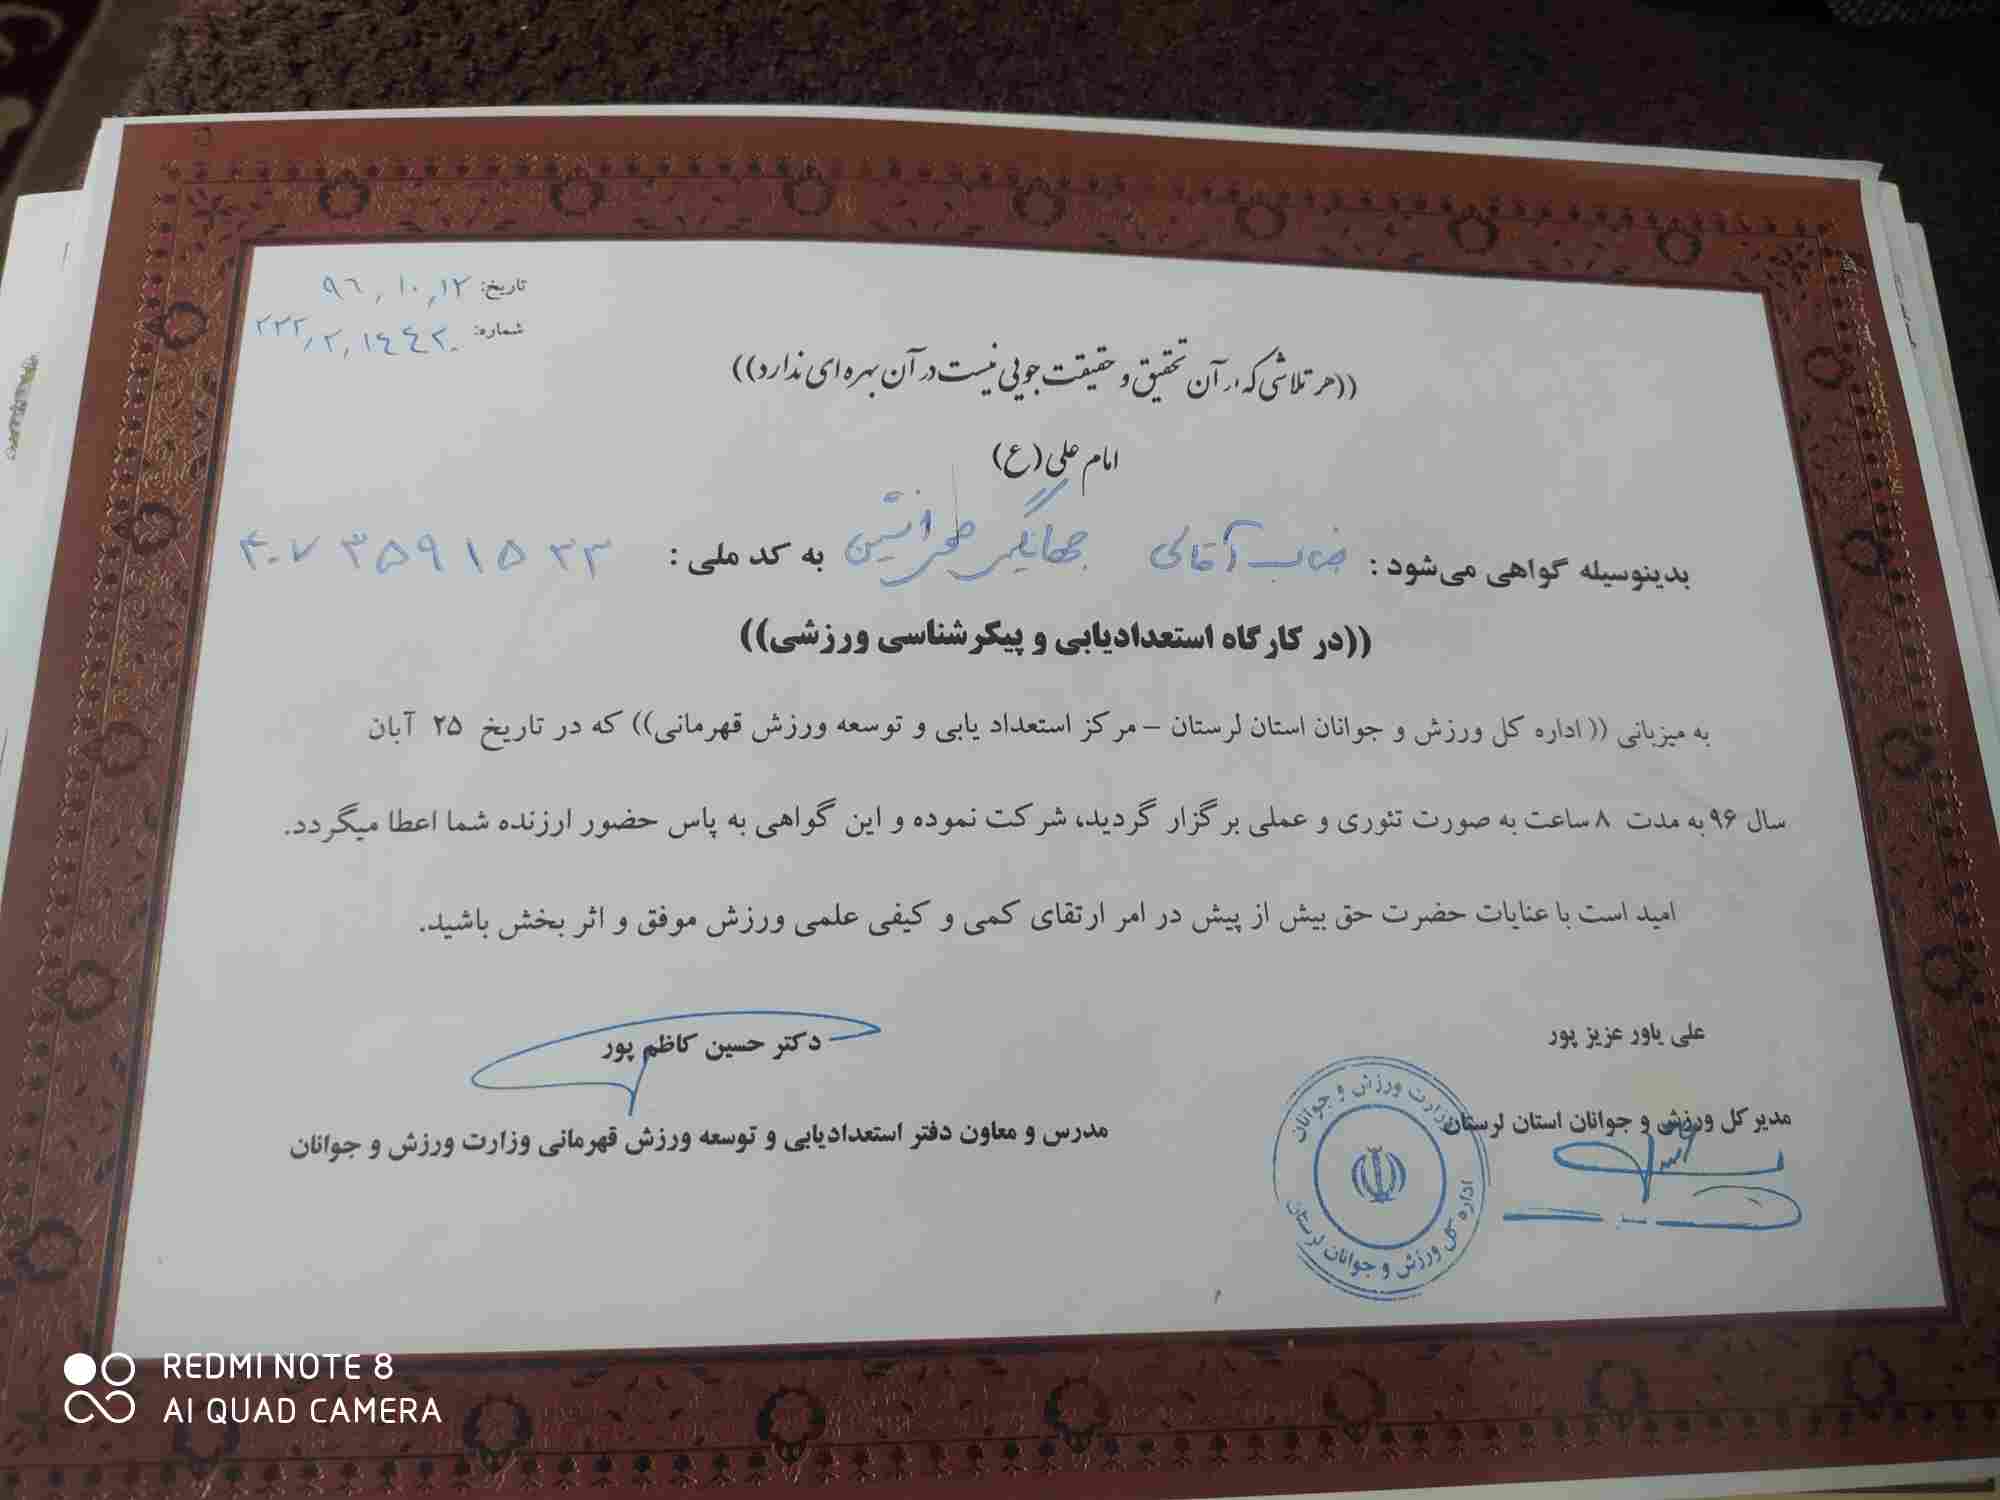 تاریخ: ۹٦٫۱۰٫۱۲
شماره: ۲۳۲٫۲٫۱٤٤۲۰
((هر تلاشی که در آن تحقیق و حقیقت جویی نیست در آن بهره ای ندارد))
امام علی (ع)
بدینوسیله گواهی می‌شود : جناب آقای جهانگیر به کد ملی : ۴۰۷۳۵۹۱۵۳۳
((در کارگاه استعدادیابی و پیکرشناسی ورزشی))
به میزبانی (( اداره کل ورزش و جوانان استان لرستان – مرکز استعداد یابی و توسعه ورزش قهرمانی)) که در تاریخ ۲۵ آبان
سال ۹۶ به مدت ۸ ساعت به صورت تئوری و عملی برگزار گردید، شرکت نموده و این گواهی به پاس حضور ارزنده شما اعطا میگردد.
امید است با عنایات حضرت حق بیش از پیش در امر ارتقای کمی و کیفی علمی ورزش موفق و اثر بخش باشید.
علی یاور عزیز پور
مدیر کل ورزش و جوانان استان لرستان
دکتر حسین کاظم پور
مدرس و معاون دفتر استعدادیابی و توسعه ورزش قهرمانی وزارت ورزش و جوانان
وزارت ورزش و جوانان
اداره کل ورزش و جوانان لرستان
REDMI NOTE 8
AI QUAD CAMERA